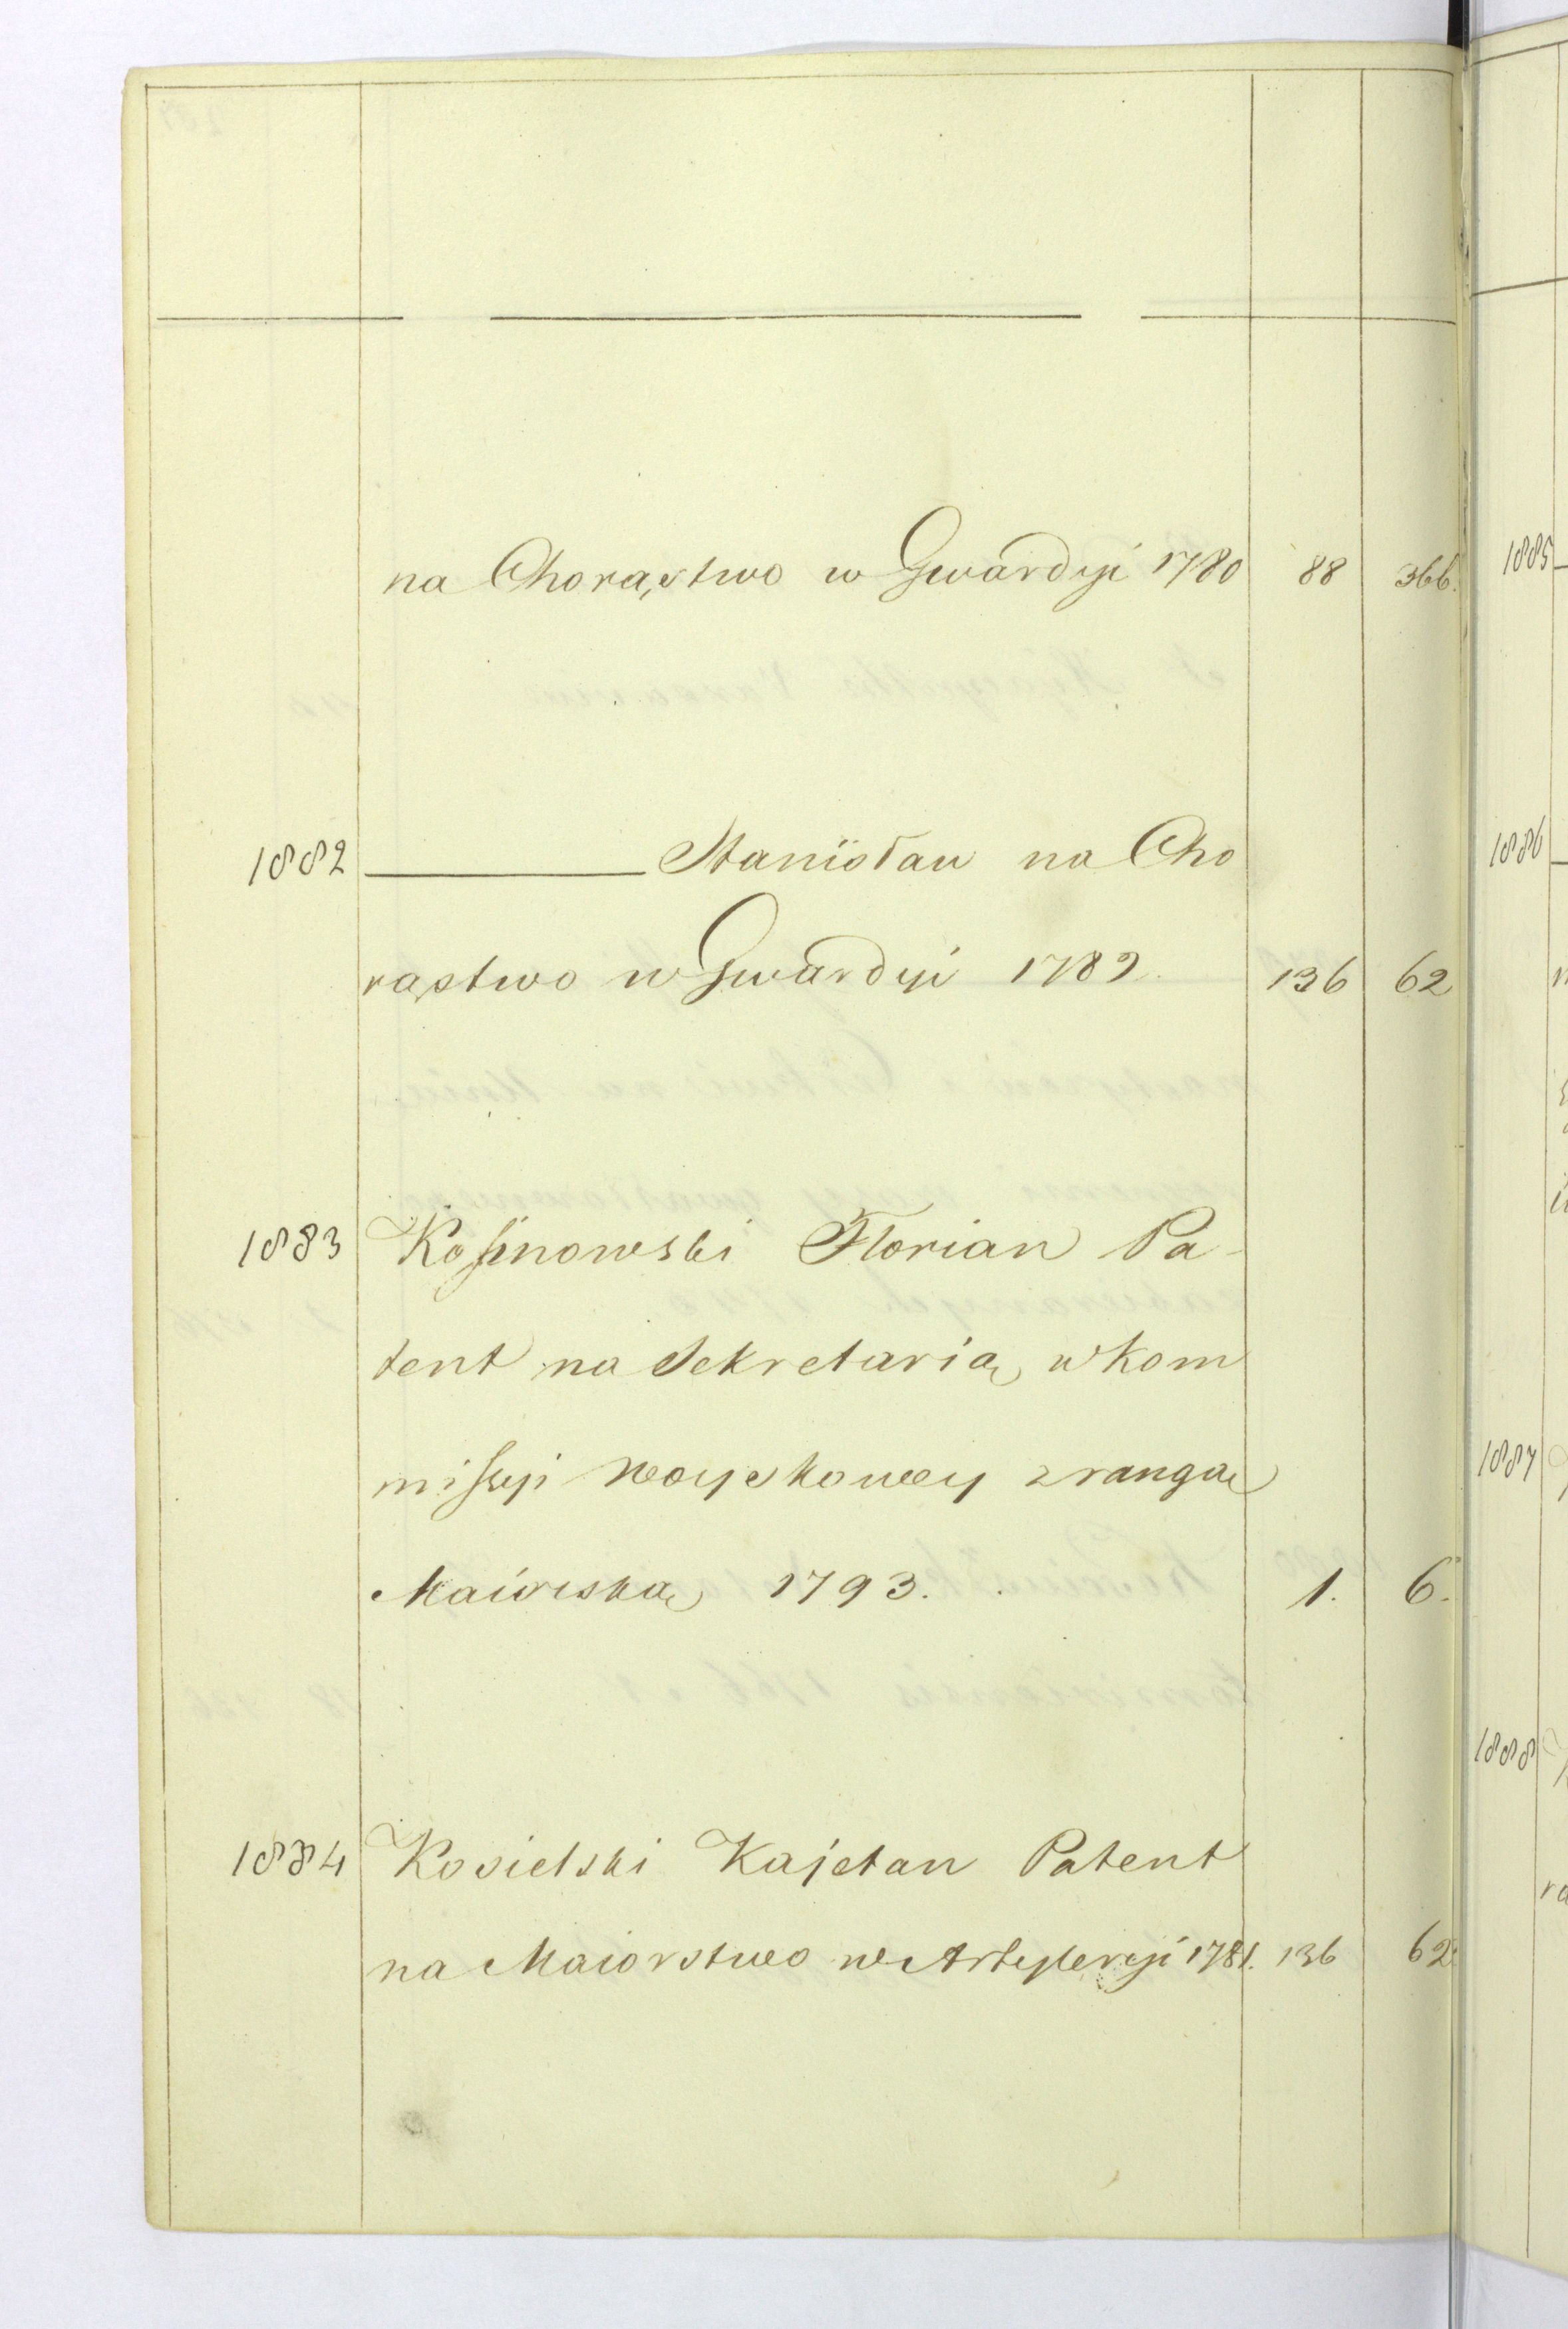 na Chorąstwo w Gwardyi 1780 88 366.
1882 Stanisław na Cho
rąstwo w Gwardyi 1789. 136 62
1883 Kossinowski Florian Pa-
tent na Sekretarią w Kom
missyi woyskowey z rangą
Maiorską 1793. 1. 6.
1884 Kosielski Kajetan Patent
na Maiorstwo w Artyleryi 1781. 136 62.
1885
1886
1887
1888